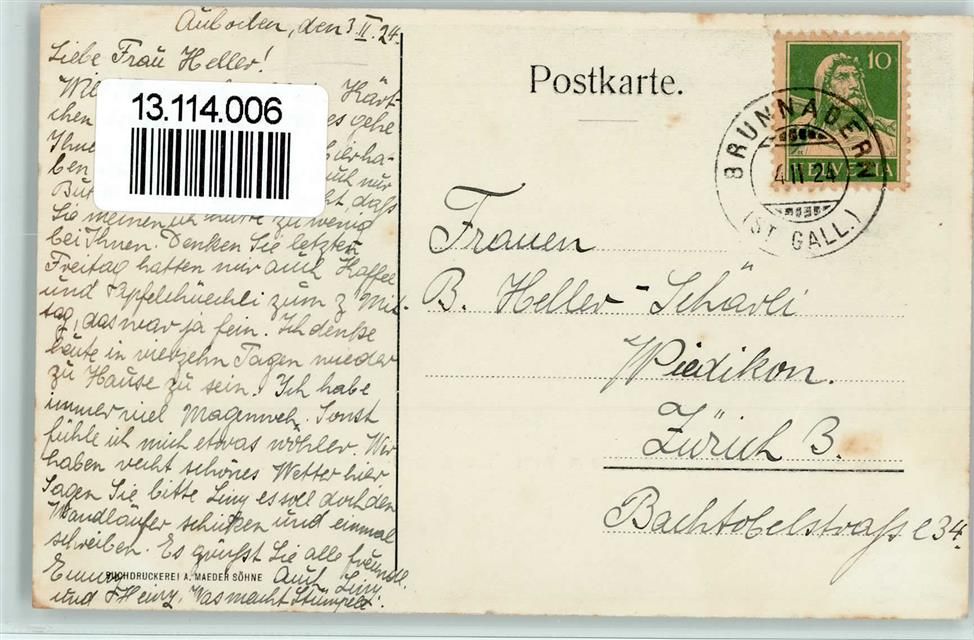 Auboden, den 3. II. 24.
Liebe Frau Heller!
Kärt-
chen es gehe
Ihne hierha-
ben auch nur
daß
Sie meinen ich wäre zu wenig
bei Ihnen. Denken Sie letzten
Freitag hatten wir auch Kaffee
und Apfelchüechli zum z'Mit-
tag, das war ja fein. Ich denke
heute in vierzehn Tagen wieder
zu Hause zu sein! Ich habe
immer viel Magenweh. Sonst
fühle ich mich etwas wöhler. Wir
haben recht schönes Wetter hier.
Sagen Sie bitte Liny es soll doch den
Wandläufer schicken und einmal
schreiben. Es grüßt Sie alle freundl.
Emmy Auch Liny
und Heiny. Was macht
BUCHDRUCKEREI A. MAEDER SÖHNE
13.114.006
Postkarte.
10
HELVETIA
BRUNNADERN
4.II.24
(ST. GALL.)
Frauen
B. Heller-Schärli
Wiedikon.
Zürich 3.
Bachtobelstraße 34.